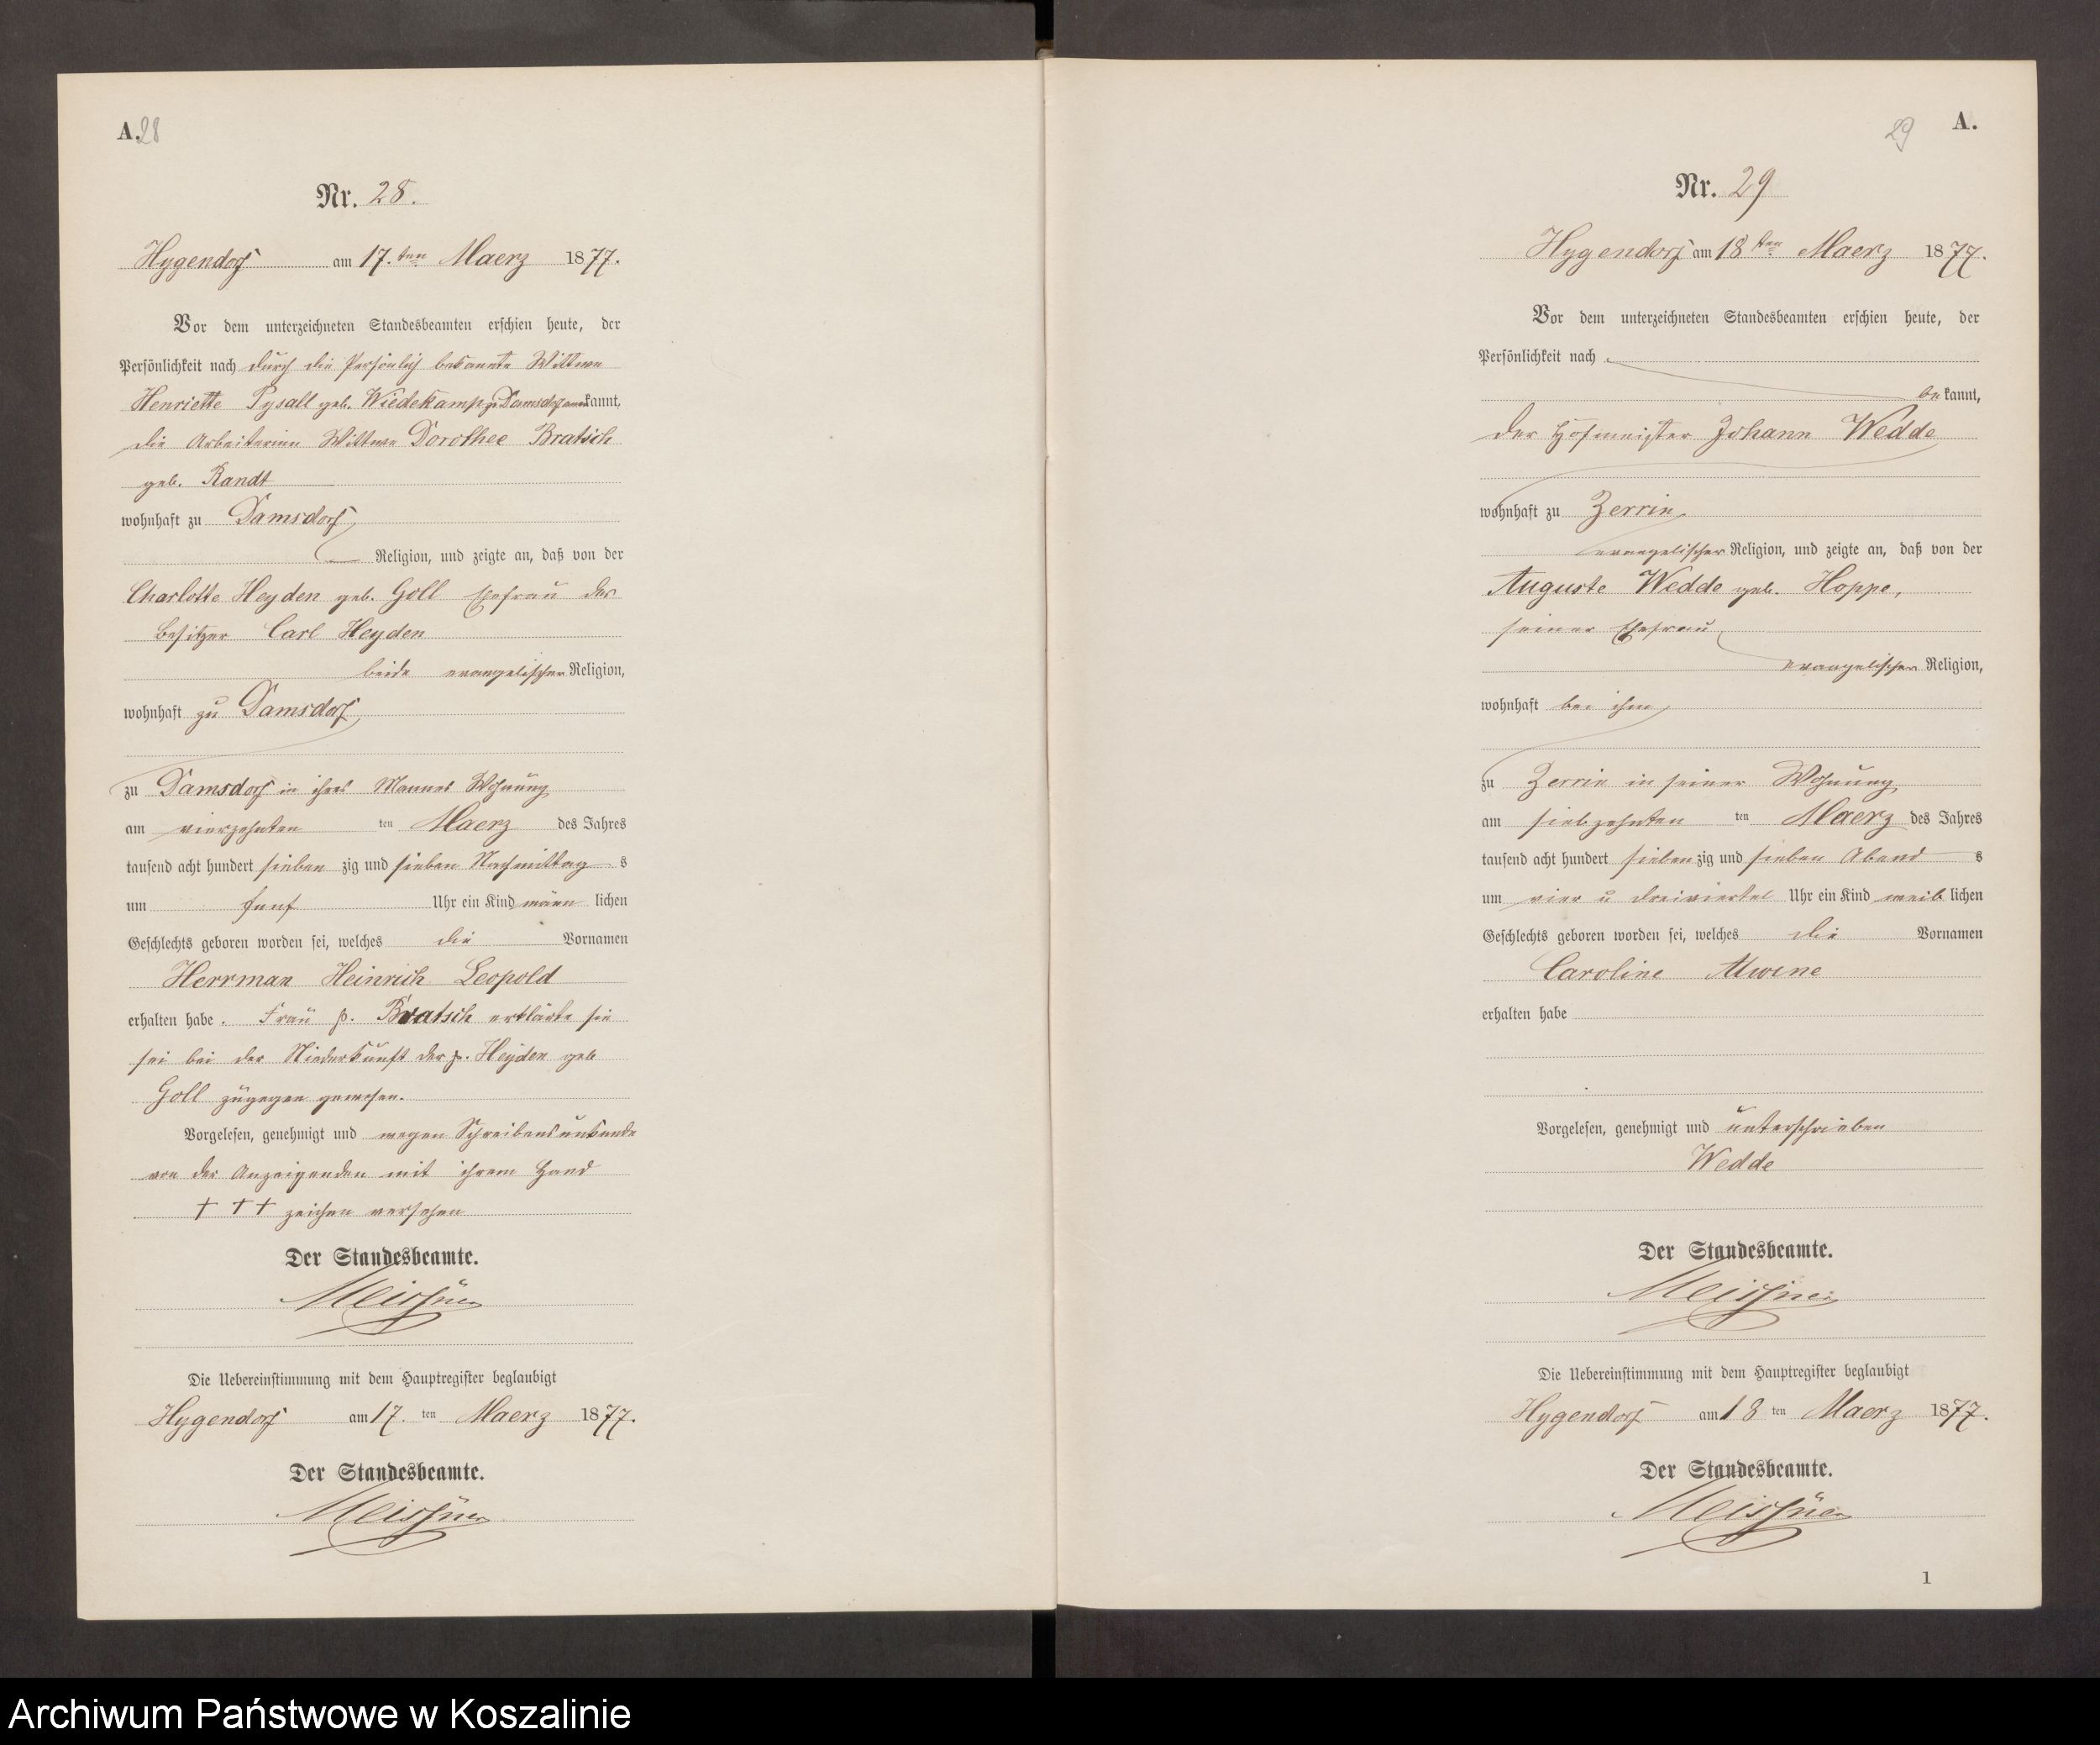 A. 28
Nr. 28.
Hygendorf am 17. ten Maerz 1877.
Vor dem unterzeichneten Standesbeamten erschien heute, der
Persönlichkeit nach durch die Persönlich bekannte Wittwe
Henriette Pysall geb. Wiedekamp zu Damsdorf anerkannt,
die Arbeiterinn Wittwe Dorothee Bratsch
geb. Randt
wohnhaft zu Damsdorf
Religion, und zeigte an, daß von der
Charlotte Heyden geb. Goll Ehefrau des
Besitzer Carl Heyden
beide evangelischer Religion,
wohnhaft zu Damsdorf
zu Damsdorf in ihres Mannes Wohnung
am vierzehnten ten Maerz des Jahres
tausend acht hundert sieben zig und sieben Nachmittag s
um fünf Uhr ein Kind männ lichen
Geschlechts geboren worden sei, welches die Vornamen
Herrman Heinrich Leopold
erhalten habe. Frau p. Bratsch erklärte sie
sei bei der Niederkunft der p. Heyden geb
Goll zugegen gewesen.
Vorgelesen, genehmigt und wegen Schreibensunkunde
von der Anzeigenden mit ihrem Hand
+ + + zeichen versehen
Der Standesbeamte.
Meissner
Die Uebereinstimmung mit dem Hauptregister beglaubigt
Hygendorf am 17. ten Maerz 1877.
Der Standesbeamte.
Meissner
29 A.
Nr. 29
Hygendorf am 18 ten Maerz 1877.
Vor dem unterzeichneten Standesbeamten erschien heute, der
Persönlichkeit nach
bekannt,
der Hofmeister Johann Wedde
wohnhaft zu Zerrin
evangelischer Religion, und zeigte an, daß von der
Auguste Wedde geb. Hoppe,
seiner Ehefrau
evangelischer Religion,
wohnhaft bei ihm
zu Zerrin in seiner Wohnung
am siebzehnten ten Maerz des Jahres
tausend acht hundert sieben zig und sieben Abend s
um vier u dreiviertel Uhr ein Kind weib lichen
Geschlechts geboren worden sei, welches die Vornamen
Caroline Alwine
erhalten habe
Vorgelesen, genehmigt und unterschrieben
Wedde
Der Standesbeamte.
Meissner
Die Uebereinstimmung mit dem Hauptregister beglaubigt
Hygendorf am 18 ten Maerz 1877.
Der Standesbeamte.
Meissner
1
Archiwum Państwowe w Koszalinie